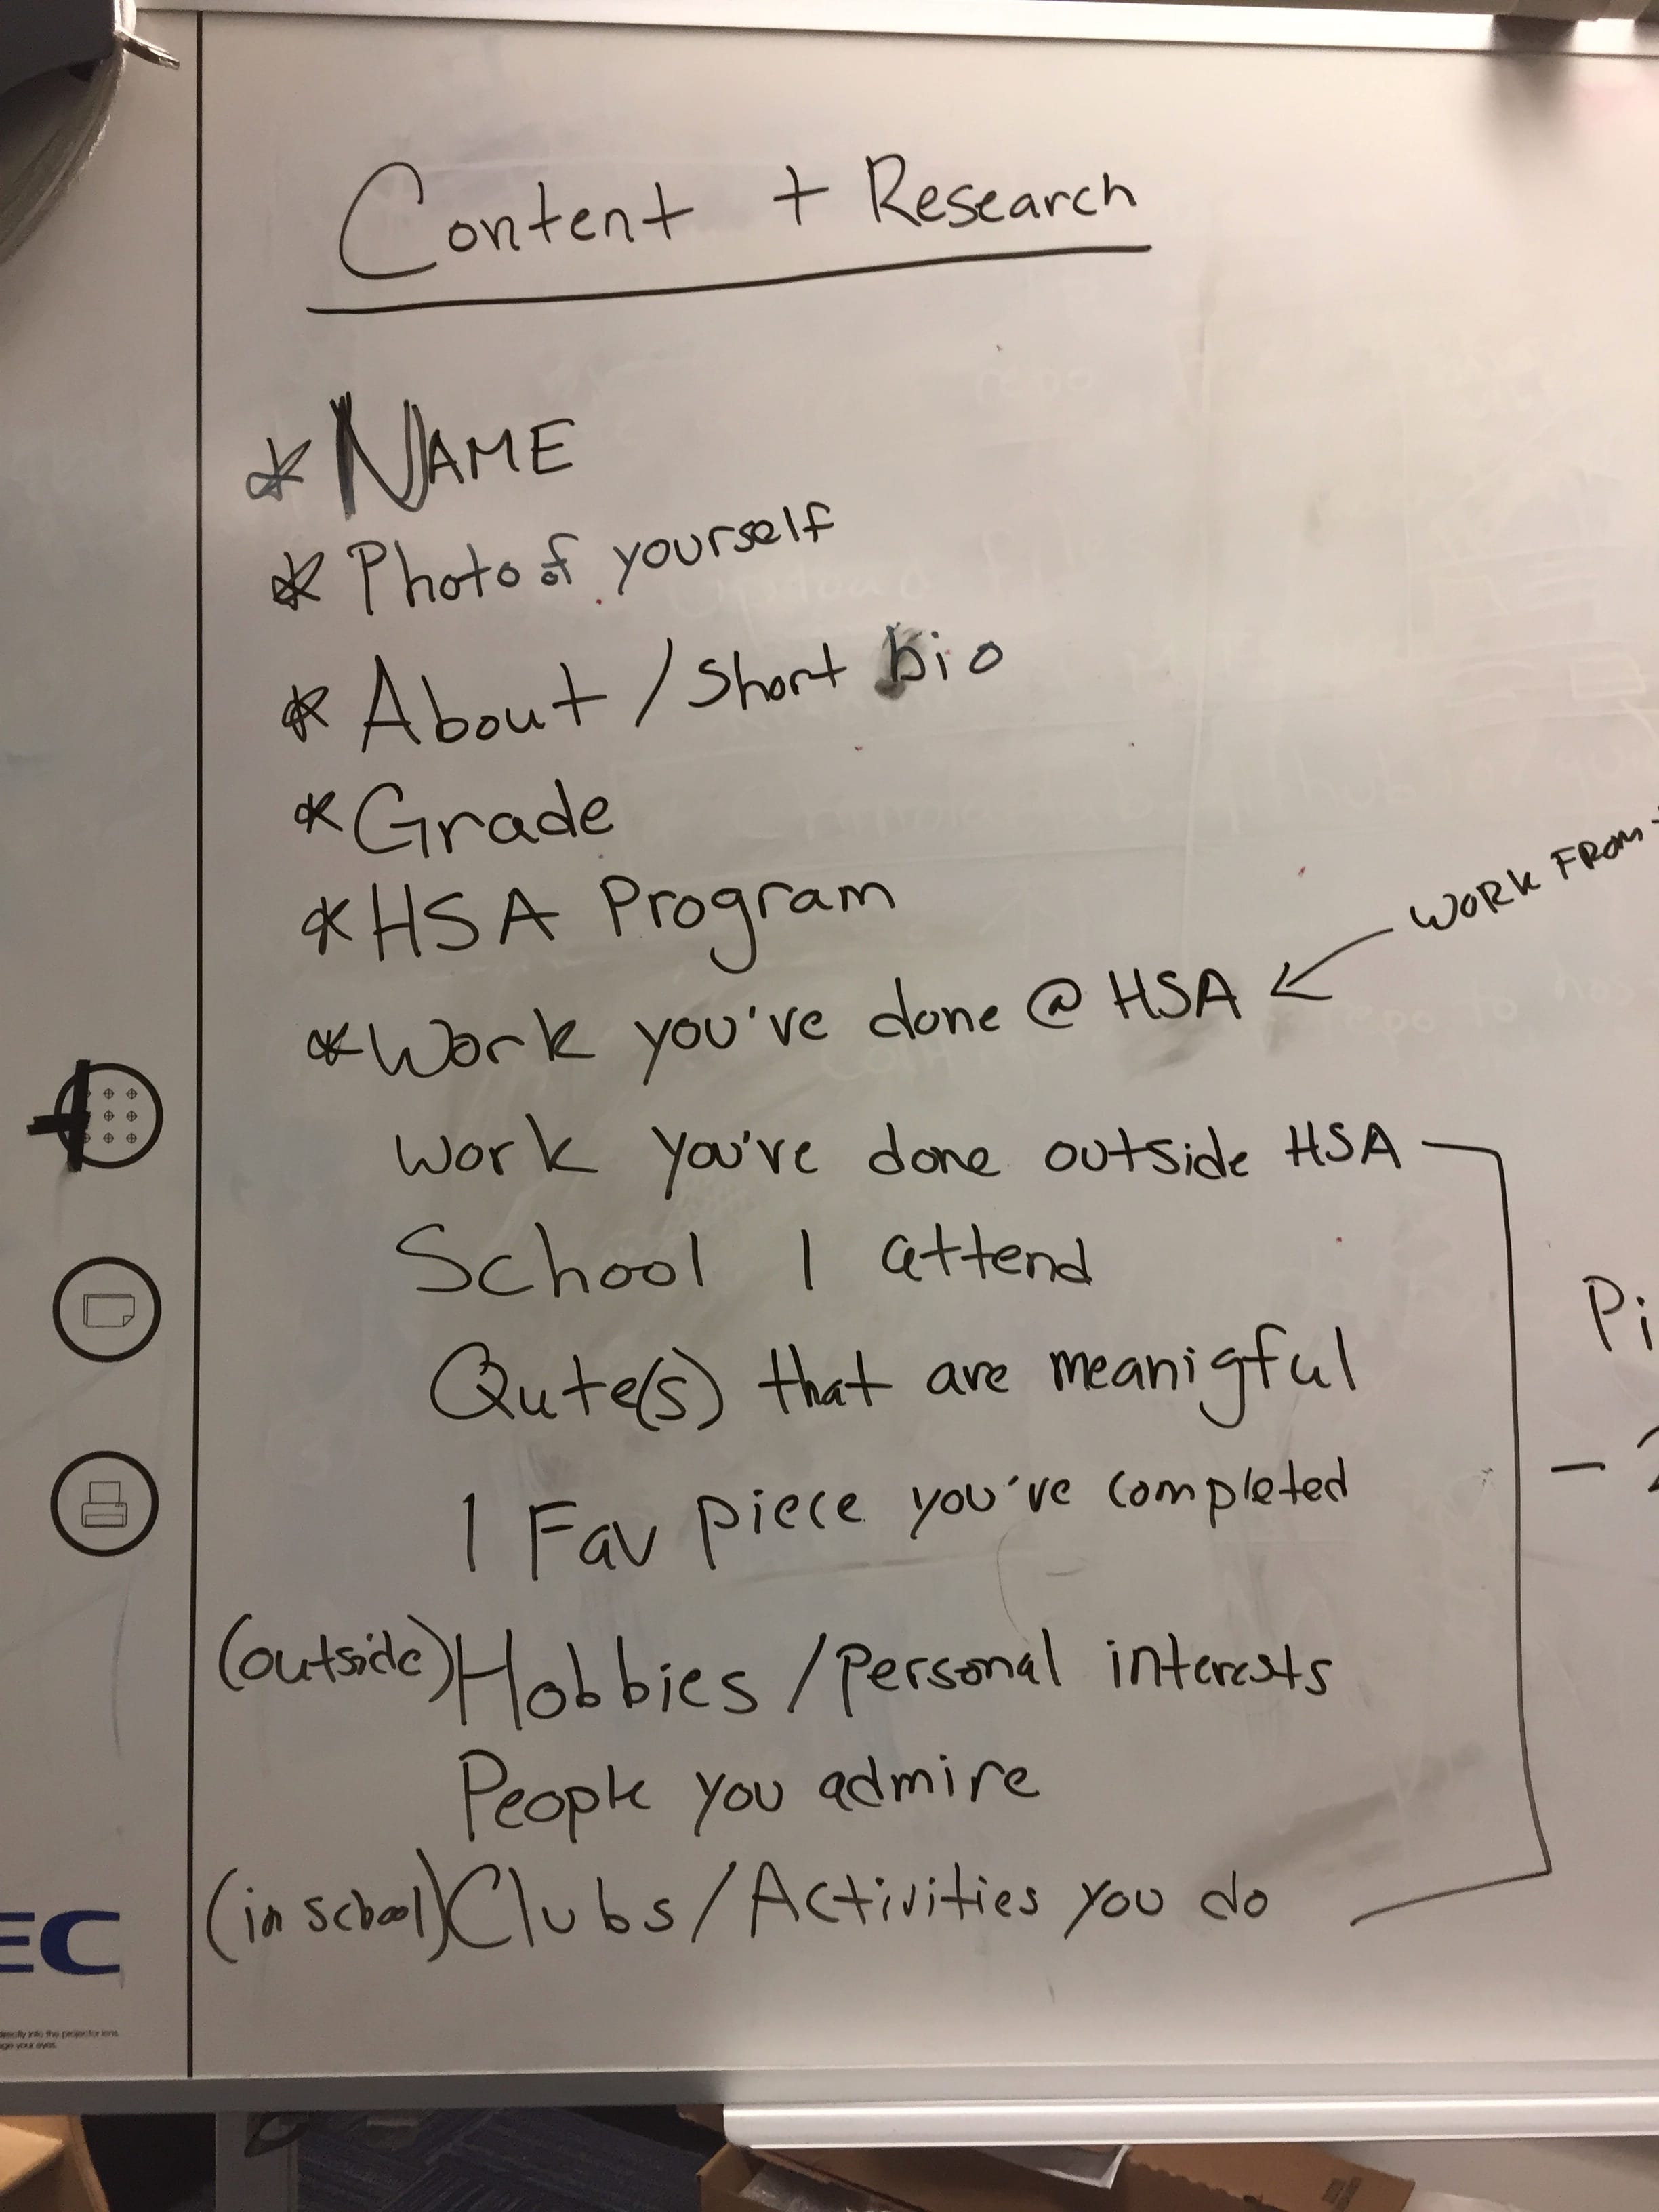 Content + Research
* NAME
* Photo of yourself
* About / Short bio
* Grade
* HSA Program
WORK FROM
* Work you've done @ HSA
Work you've done outside HSA
School I attend
Qute(s) that are meanigful
Pi
1 Fav piece you've completed
(outside) Hobbies / Personal interests
People you admire
(in school) Clubs / Activities you do
EC
directly into the projector lens.
age your eyes.